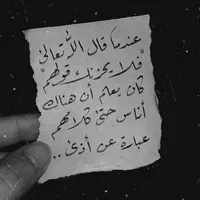 عندما قال الله تعالى
"فلا يحزنك قولهم"
كان يعلم أن هناك
أناس حتى كلامهم
عبارة عن أذى ..